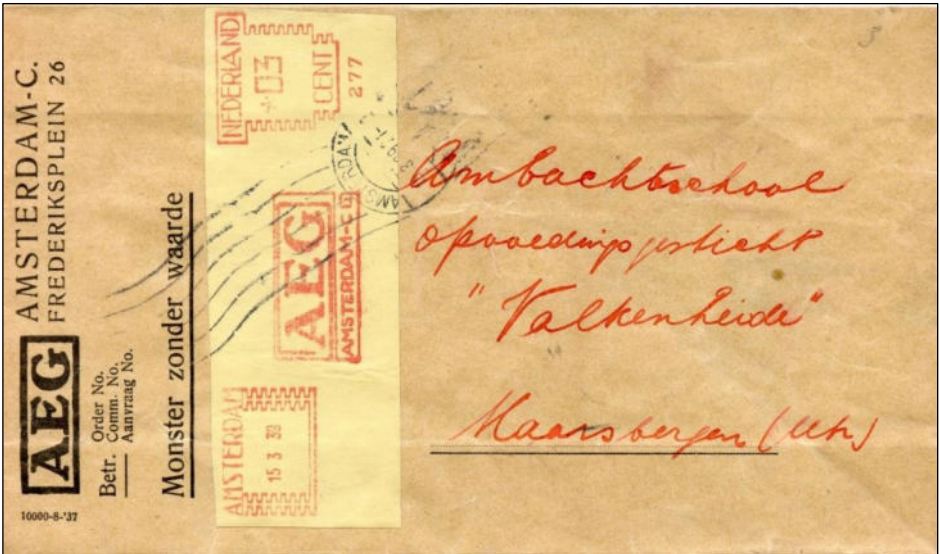 AEG
AMSTERDAM-C.
FREDERIKSPLEIN 26
Betr. Order No.
Comm. No.
Aanvraag No.
Monster zonder waarde
10000-8-'37
NEDERLAND
03
CENT
277
AEG
AMSTERDAM-C
AMSTERDAM
15 3 39
AMSTERDAM
Ambachtsschool
opvoedingsgesticht
"Valkenheide"
Maarsbergen (Utr.)
5